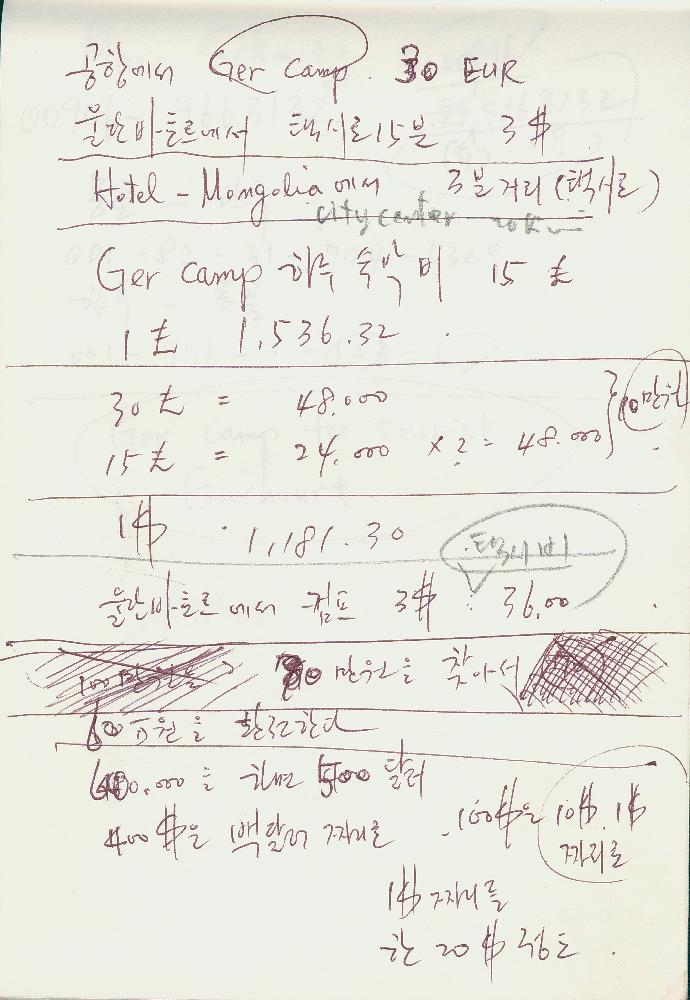 공항에서 Ger camp. 30 EUR
울란바토르에서 택시로 15분 3$
Hotel - Mongolia에서 3분거리(택시로)
city center 20km
Ger camp 하루 숙박비 15 £
1 £ 1,536.32
30 £ = 48.000
15 £ = 24,000 x 2 = 48.000 } 10만원
1$ 1,181.30
택시비
울란바토르에서 캠프 3$ : 36,00
100만원을 80만원을 찾아서
60만원을 환전한다
600.000를 하면 500달러
400$을 백달러 짜리로 100$을 10$. 1$
짜리로
1$ 짜리를
한 20$ 정도.